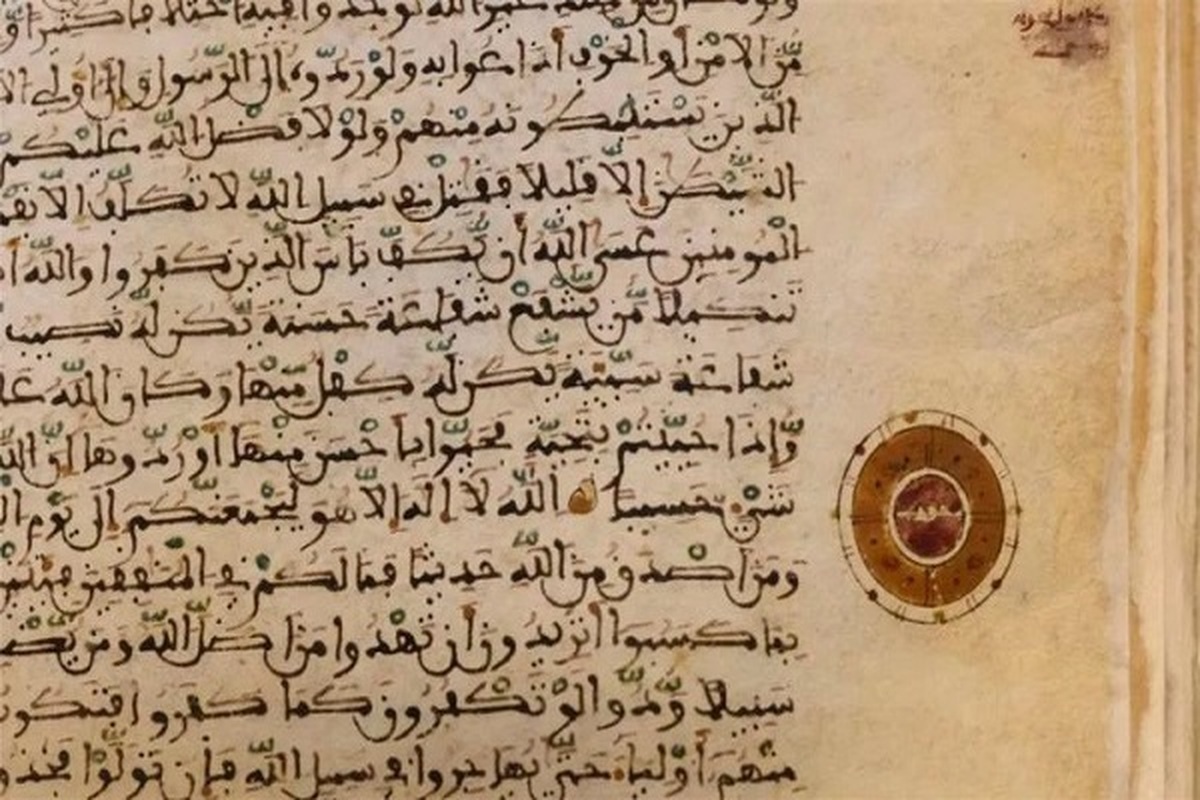 من عند غير الله لوجدوا فيه اختلافا كثيرا
مِّنَ الامْنِ أوِ الخَوْفِ أذاعوا به ولَوْ رَدُّوهُ إلى الرَّسُولِ وإلى أولي
الذين يَسْتَنۢبِطُونه منهمْ ولَوْلا فضل اللّه عليْكمْ
الشَّيْطٰنَ إلّا قليلا فقٰتل في سبيل اللّه لا تُكلَّف إلا
المومنين عسى اللّه أن يَّكفَّ بأس الذين كفروا واللّه
تنكيلا مَّن يشْفعْ شفٰعة حسنة يَّكن له نصيب
شفٰعة سيّئة يَّكن له كفل مِّنْها وكان اللّه
وَإذا حُيِّيتم بتحيَّة فحيُّوا بأحْسن منها أوْ رُدُّوها إنَّ
شيْء حسيبا اللّه لا إله إلّا هو ليَجْمعنَّكم إلى يوْم
ومن أصْدق من اللّه حديثا فما لكمْ في المنٰفقين فئتين
بما كسبوا أتريدون أن تهْدوا من أضلَّ اللّه ومن يُّضلل
سبيلا ودُّوا لوْ تكْفرون كما كفروا فتكونون
منهمْ أوْلياء حتّى يهاجروا في سبيل اللّه فإن تولَّوْا